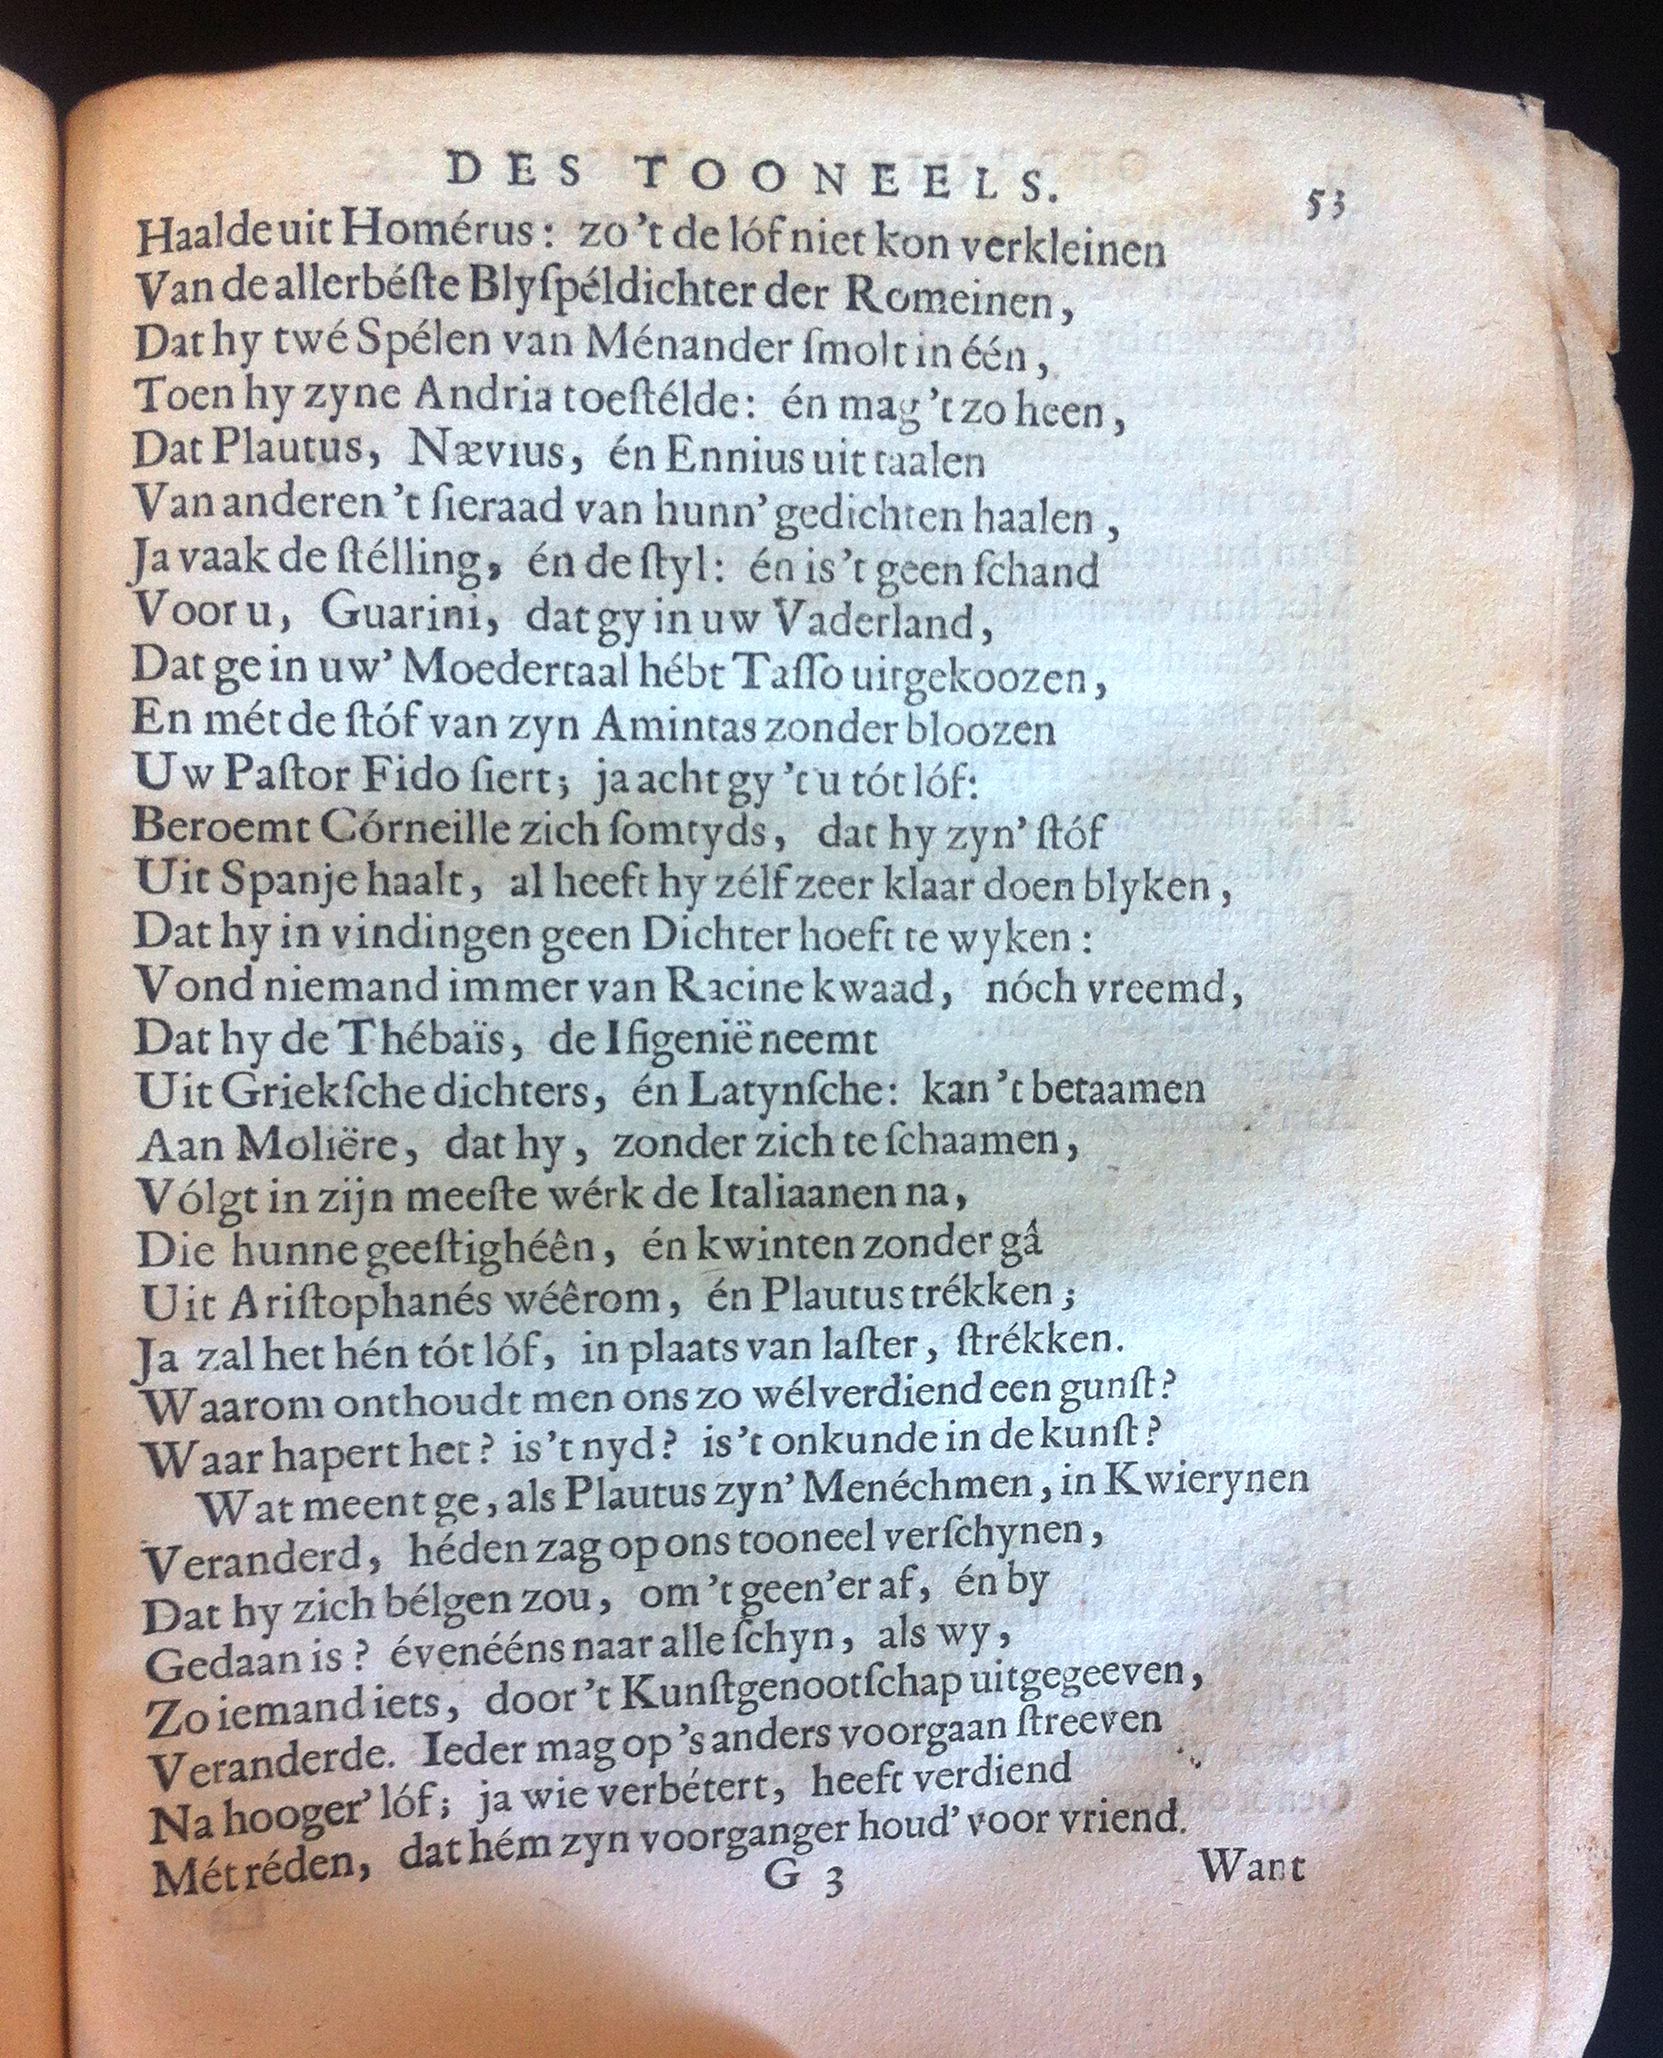 DES TOONEELS. 53
Haalde uit Homérus: zo 't de lóf niet kon verkleinen
Van de allerbéſte Blyſpéldichter der Romeinen,
Dat hy twé Spélen van Ménander ſmolt in één,
Toen hy zyne Andria toeſtélde: én mag 't zo heen,
Dat Plautus, Nævius, én Ennius uit taalen
Van anderen 't ſieraad van hunn' gedichten haalen,
Ja vaak de ſtélling, én de ſtyl: én is 't geen ſchand
Voor u, Guarini, dat gy in uw Vaderland,
Dat ge in uw' Moedertaal hébt Taſſo uitgekoozen,
En mét de ſtóf van zyn Amintas zonder bloozen
Uw Paſtor Fido ſiert; ja acht gy 't u tót lóf:
Beroemt Córneille zich ſomtyds, dat hy zyn' ſtóf
Uit Spanje haalt, al heeft hy zélf zeer klaar doen blyken,
Dat hy in vindingen geen Dichter hoeft te wyken:
Vond niemand immer van Racine kwaad, nóch vreemd,
Dat hy de Thébaïs, de Ifigenië neemt
Uit Griekſche dichters, én Latynſche: kan 't betaamen
Aan Moliëre, dat hy, zonder zich te ſchaamen,
Vólgt in zijn meeſte wérk de Italiaanen na,
Die hunne geeſtighéên, én kwinten zonder gâ
Uit Ariſtophanés wéêrom, én Plautus trékken;
Ja zal het hén tót lóf, in plaats van laſter, ſtrékken.
Waarom onthoudt men ons zo wélverdiend een gunſt?
Waar hapert het? is 't nyd? is 't onkunde in de kunſt?
Wat meent ge, als Plautus zyn' Menéchmen, in Kwierynen
Veranderd, héden zag op ons tooneel verſchynen,
Dat hy zich bélgen zou, om 't geen 'er af, én by
Gedaan is? évenééns naar alle ſchyn, als wy,
Zo iemand iets, door 't Kunſtgenootſchap uitgegeeven,
Veranderde. Ieder mag op 's anders voorgaan ſtreeven
Na hooger' lóf; ja wie verbétert, heeft verdiend
Mét réden, dat hém zyn voorganger houd' voor vriend.
G 3 Want